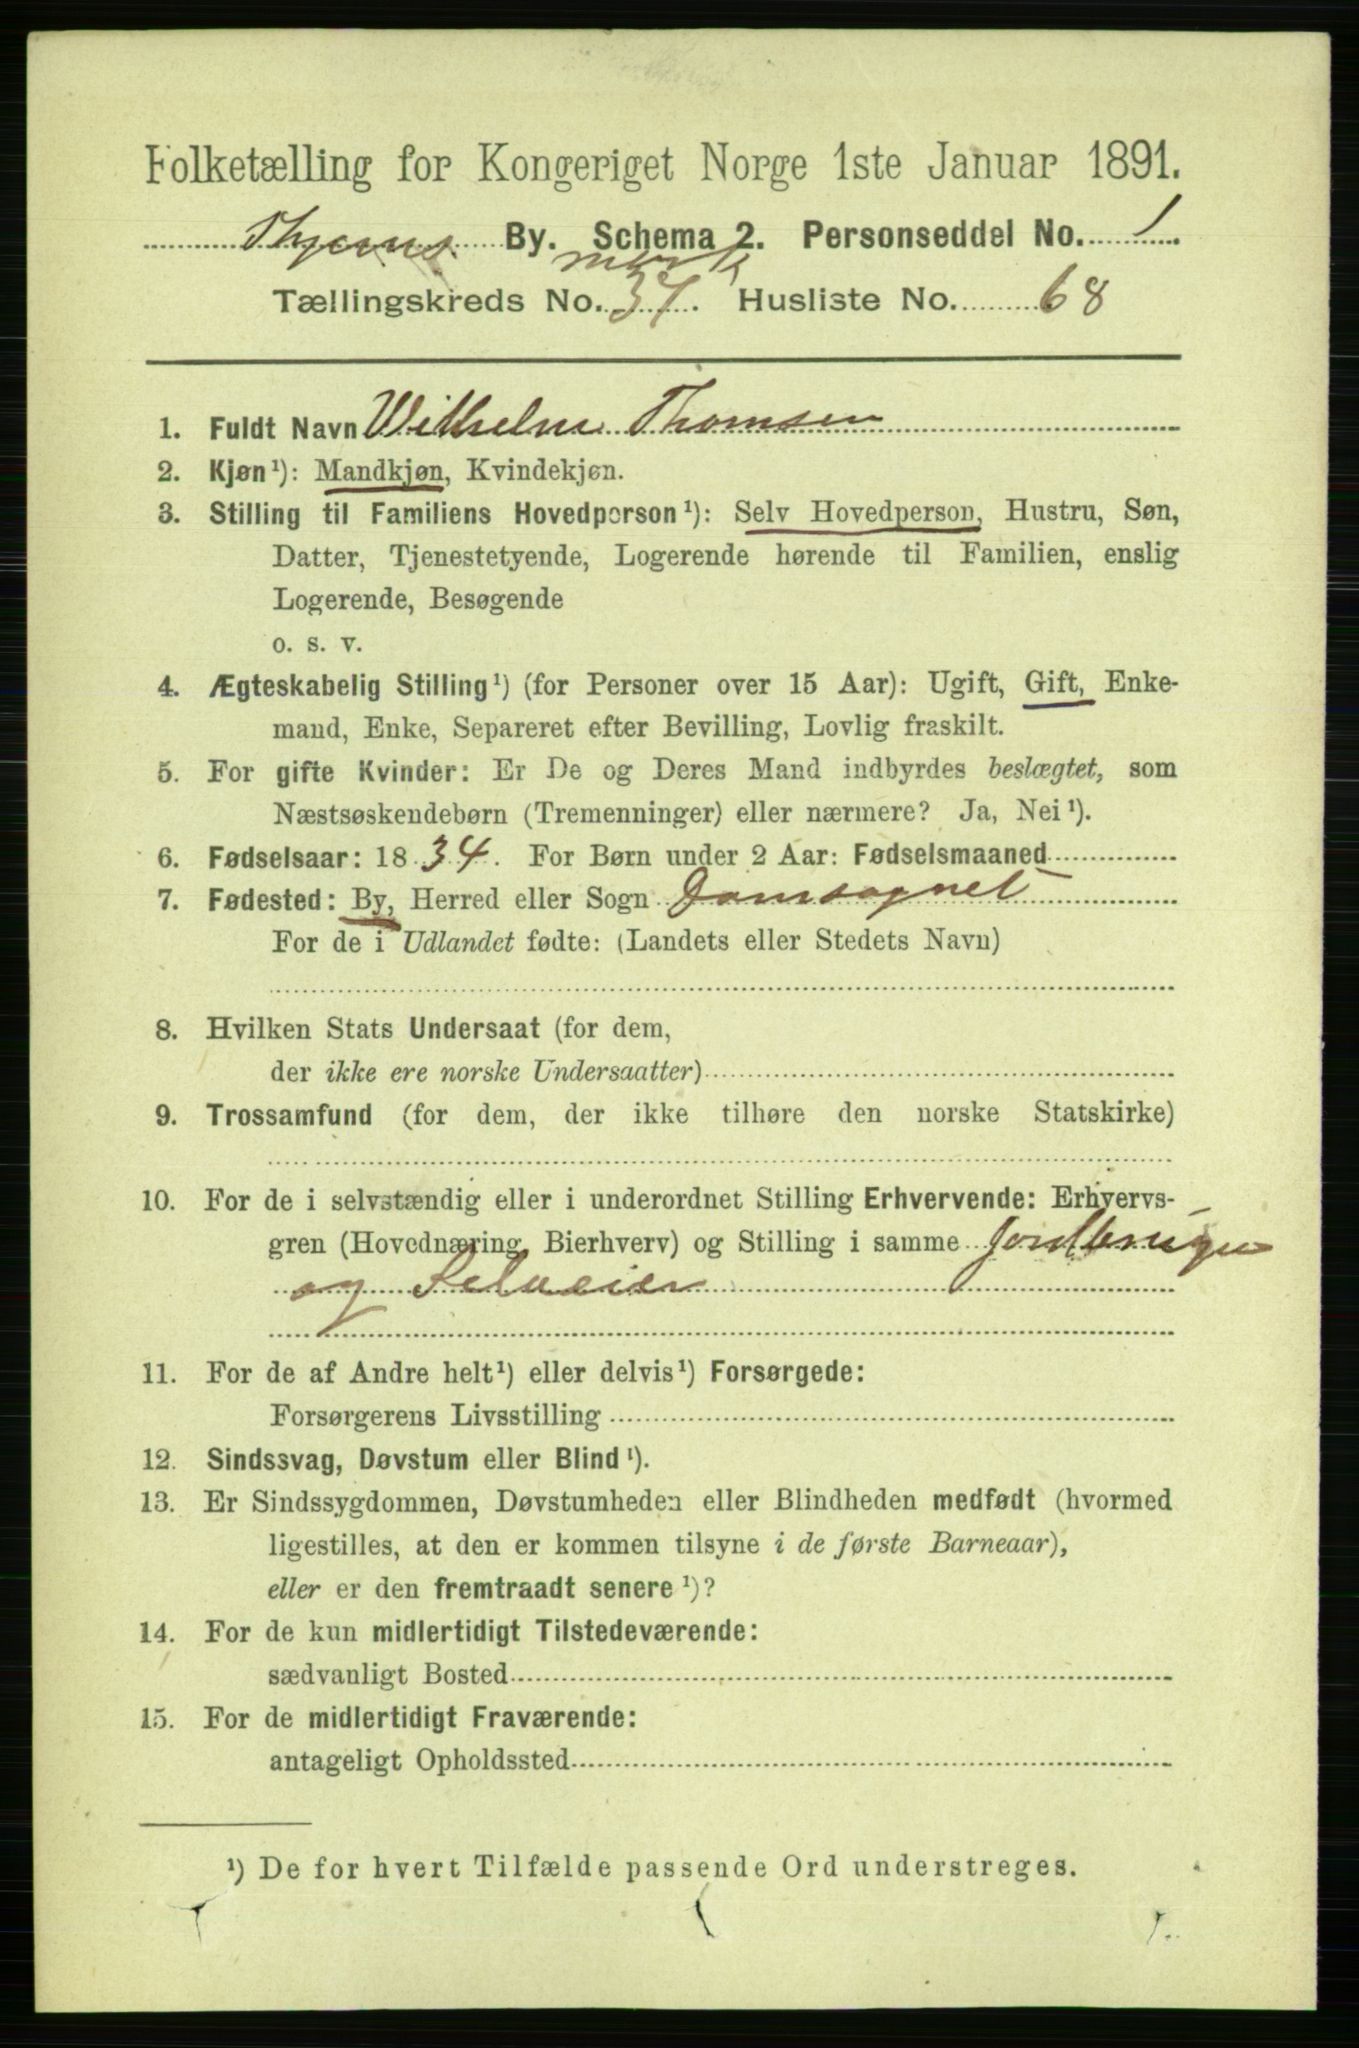 Folketælling for Kongeriget Norge 1ste Januar 1891.
By. Schema 2. Personseddel No. 1
mark
Tællingskreds No. 34. Husliste No. 68
1. Fuldt Navn Wilhelm Thomsen
2. Kjøn¹): Mandkjøn, Kvindekjøn.
3. Stilling til Familiens Hovedperson¹): Selv Hovedperson, Hustru, Søn,
Datter, Tjenestetyende, Logerende hørende til Familien, enslig
Logerende, Besøgende
o. s. v.
4. Ægteskabelig Stilling¹) (for Personer over 15 Aar): Ugift, Gift, Enke-
mand, Enke, Separeret efter Bevilling, Lovlig fraskilt.
5. For gifte Kvinder: Er De og Deres Mand indbyrdes beslægtet, som
Næstsøskendebørn (Tremenninger) eller nærmere? Ja, Nei¹).
6. Fødselsaar: 1834. For Børn under 2 Aar: Fødselsmaaned
7. Fødested: By, Herred eller Sogn Domsognet
For de i Udlandet fødte: (Landets eller Stedets Navn)
8. Hvilken Stats Undersaat (for dem,
der ikke ere norske Undersaatter)
9. Trossamfund (for dem, der ikke tilhøre den norske Statskirke)
10. For de i selvstændig eller i underordnet Stilling Erhvervende: Erhvervs-
gren (Hovednæring, Bierhverv) og Stilling i samme Jordbruger
og Selveier
11. For de af Andre helt¹) eller delvis¹) Forsørgede:
Forsørgerens Livsstilling
12. Sindssvag, Døvstum eller Blind¹).
13. Er Sindssygdommen, Døvstumheden eller Blindheden medfødt (hvormed
ligestilles, at den er kommen tilsyne i de første Barneaar),
eller er den fremtraadt senere¹)?
14. For de kun midlertidigt Tilstedeværende:
sædvanligt Bosted
15. For de midlertidigt Fraværende:
antageligt Opholdssted
¹) De for hvert Tilfælde passende Ord understreges.